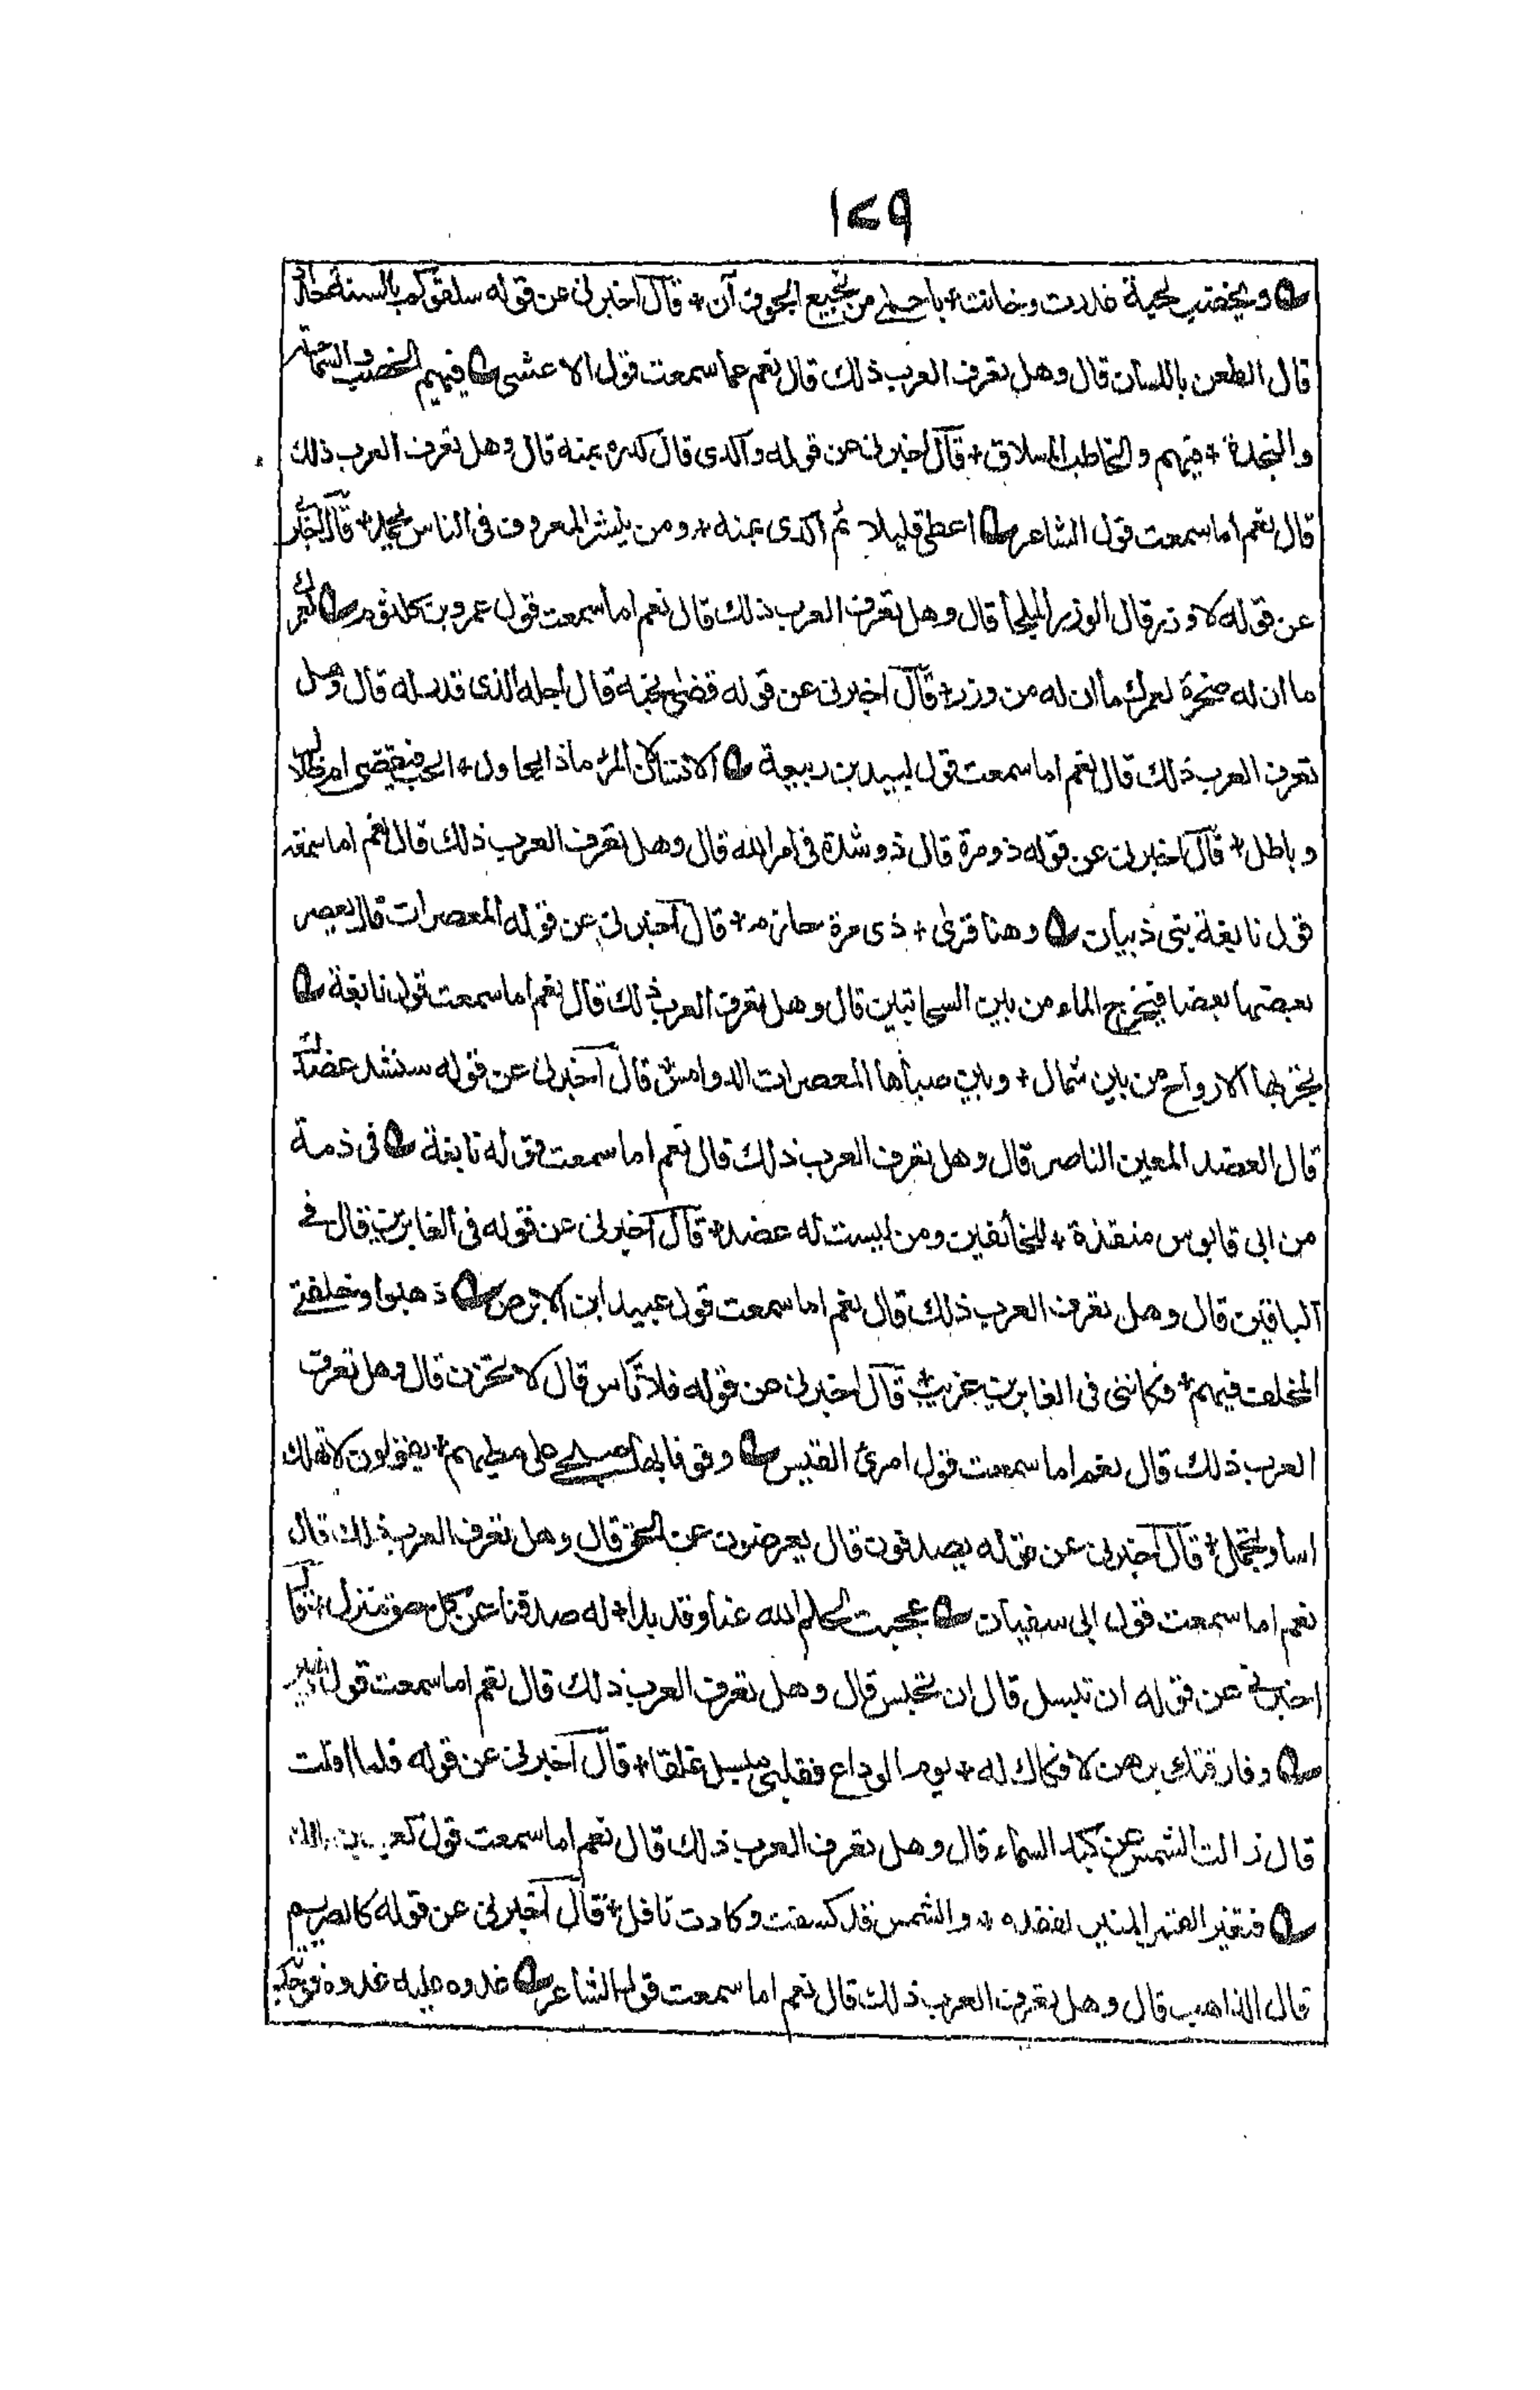 ١٤٩
ويخضب لحية غدرت وخانت + باحمر من نجيع الجوف آن + قال اخبرنى عن قوله سلقوكم بالسنة حداد
قال الطعن باللسان قال وهل تعرف العرب ذلك قال نعم اما سمعت قول الاعشى فيهم الخصب والسماحة
والنجدة + فيهم والخاطب المسلاق + قال اخبرنى عن قوله واكدى قال كدره بمنه قال وهل تعرف العرب ذلك
قال نعم اما سمعت قول الشاعر اعطى قليلا ثم اكدى بمنه + ومن ينشر المعروف فى الناس يحمد + قال اخبرنى
عن قوله لا وزر قال الوزر الملجأ قال وهل تعرف العرب ذلك قال نعم اما سمعت قول عمرو بن كلثوم لعمرك
ما ان له صخرة لعمرك ما ان له من وزر + قال اخبرنى عن قوله قضى نحبه قال اجله الذى قدر له قال وهل
تعرف العرب ذلك قال نعم اما سمعت قول لبيد بن ربيعة الا تسئلان المرء ماذا يحاول + انحب فيقضى ام ضلال
وباطل + قال اخبرنى عن قوله ذو مرة قال ذو شدة فى امر الله قال وهل تعرف العرب ذلك قال نعم اما سمعت
قول نابغة بنى ذبيان وهنا قرى + ذى مرة حازم + قال اخبرنى عن قوله المعصرات قال يعصر
بعضها بعضا فيخرج الماء من بين السحابتين قال وهل تعرف العرب ذلك قال نعم اما سمعت قول نابغة
تجر بها الارواح من بين شمال + وبين صباها المعصرات الدوامس + قال اخبرنى عن قوله سنشد عضدك
قال العضد المعين الناصر قال وهل تعرف العرب ذلك قال نعم اما سمعت قوله نابغة فى ذمة
من ابى قابوس منقذة + للخائفين ومن ليست له عضد + قال اخبرنى عن قوله فى الغابرين قال فى
الباقين قال وهل تعرف العرب ذلك قال نعم اما سمعت قول عبيد ابن الابرص ذهبوا وخلفنى
المخلف فيهم + فكاننى فى الغابرين غريب + قال اخبرنى عن قوله فلا تأس قال لا تحزن قال وهل تعرف
العرب ذلك قال نعم اما سمعت قول امرئ القيس وقوفا بها صحبى على مطيهم + يقولون لا تهلك
اسا وتجمل + قال اخبرنى عن قوله يصدفون قال يعرضون عن الحق قال وهل تعرف العرب ذلك قال
نعم اما سمعت قول ابى سفيان عجبت لحلم الله عنا وقد بدا + له صدفنا عن كل حق منزل + قال
اخبرنى عن قوله ان تبسل قال ان تحبس قال وهل تعرف العرب ذلك قال نعم اما سمعت قول زهير
وفارقتك برهن لا فكاك له + يوم الوداع فقلبى مبسل غلقا + قال اخبرنى عن قوله فلما افلت
قال زالت الشمس عن كبد السماء قال وهل تعرف العرب ذلك قال نعم اما سمعت قول كعب بن مالك
فتغير القمر المنير لفقده + والشمس قد كسفت وكادت تافل + قال اخبرنى عن قوله كالصريم
قال الذاهب قال وهل تعرف العرب ذلك قال نعم اما سمعت قول الشاعر غدوت عليه غدوة فوجدته